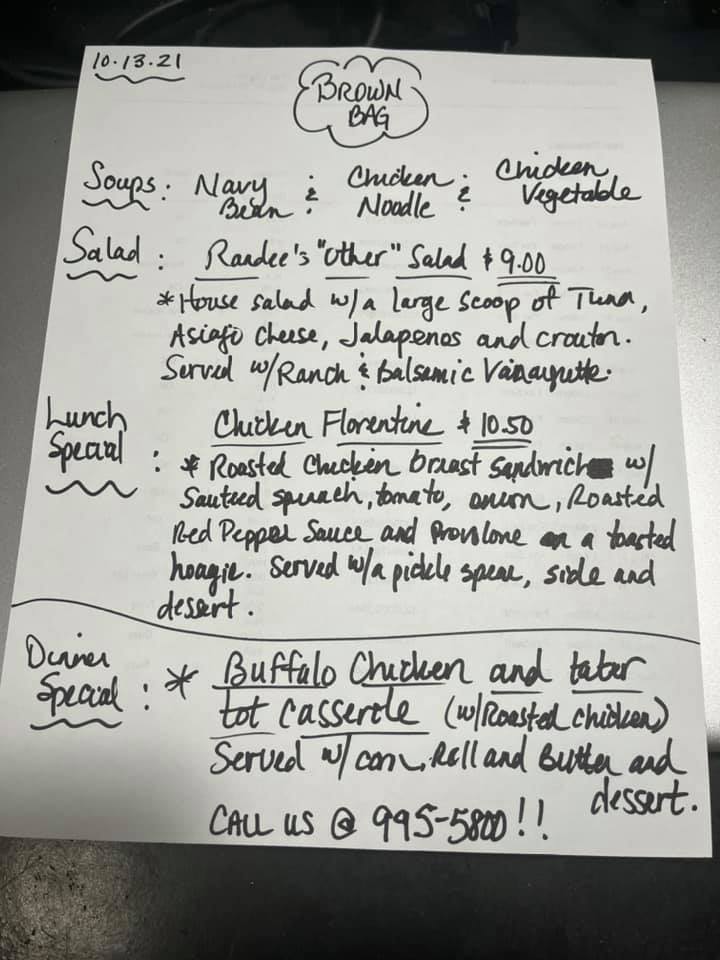 10.13.21
BROWN
BAG
Soups: Navy Bean & Chicken Noodle & Chicken Vegetable
Salad: Randee's "Other" Salad $9.00
*House salad w/a large scoop of Tuna,
Asiago cheese, Jalapenos and crouton.
Served w/Ranch & Balsamic Vinaigrette.
Lunch Special: Chicken Florentine $10.50
* Roasted Chicken breast sandwich w/
Sauteed spinach, tomato, onion, Roasted
Red Pepper Sauce and Provolone on a toasted
hoagie. Served w/a pickle spear, side and
dessert.
Dinner Special: * Buffalo Chicken and tater
tot casserole (w/Roasted chicken)
Served w/ corn, Roll and Butter and
dessert.
CALL US @ 995-5800!!